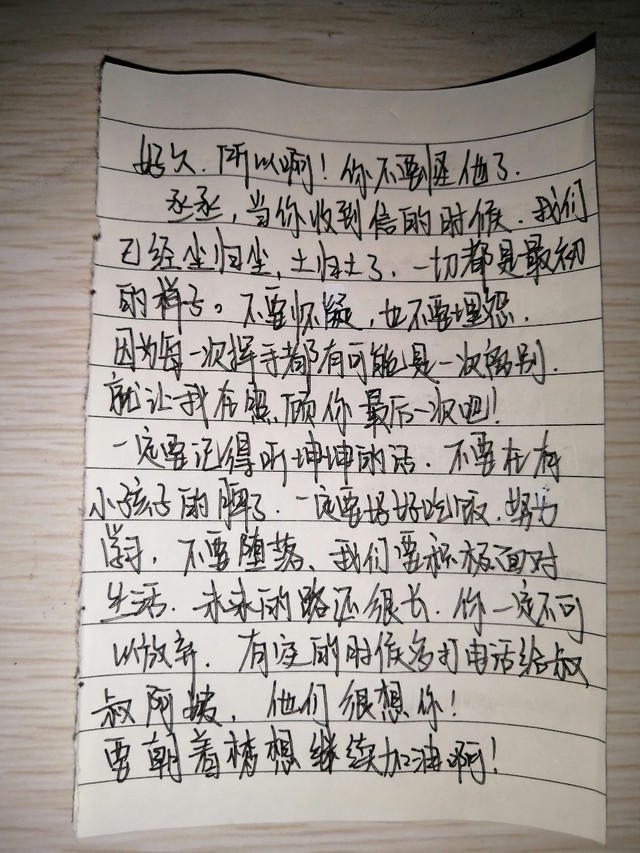 好久.所以啊!你不要怪他了.
丞丞,当你收到信的时候.我们
已经尘归尘,土归土了.一切都是最初
的样子。不要怀疑,也不要埋怨.
因为每一次挥手都有可能是一次离别.
就让我在照顾你最后一次吧!
一定要记得听坤坤的话.不要在有
小孩子的脾气.一定要好好吃饭.努力
学习,不要堕落、我们要积极面对
生活.未来的路还很长.你一定不可
以放弃.有空的时候多打电话给叔
叔阿姨,他们很想你!
要朝着梦想继续加油啊!